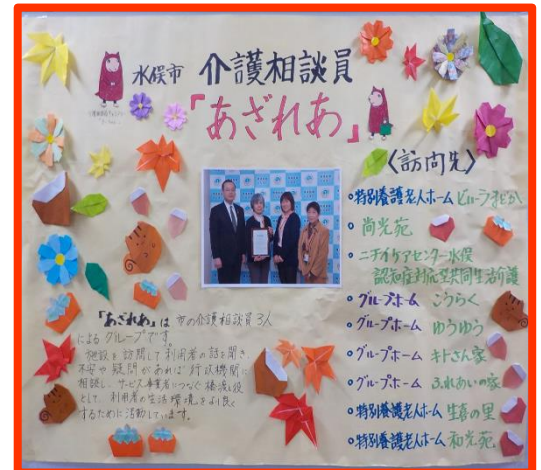 水俣市 介護相談員
「あざれあ」
〈訪問先〉
特別養護老人ホーム
尚光苑
ニチイケアセンター水俣
認知症対応型共同生活介護
グループホーム こうらく
グループホーム ゆうゆう
グループホーム キトさん家
グループホーム ふれあいの家
特別養護老人ホーム 生喜の里
特別養護老人ホーム 和光苑
「あざれあ」は 市の介護相談員3人
によるグループです。
施設を訪問して利用者の話を聞き、
不安や疑問があれば行政機関に
相談し、サービス事業者につなぐ橋渡し役
として、利用者の生活環境をより良く
するために活動しています。